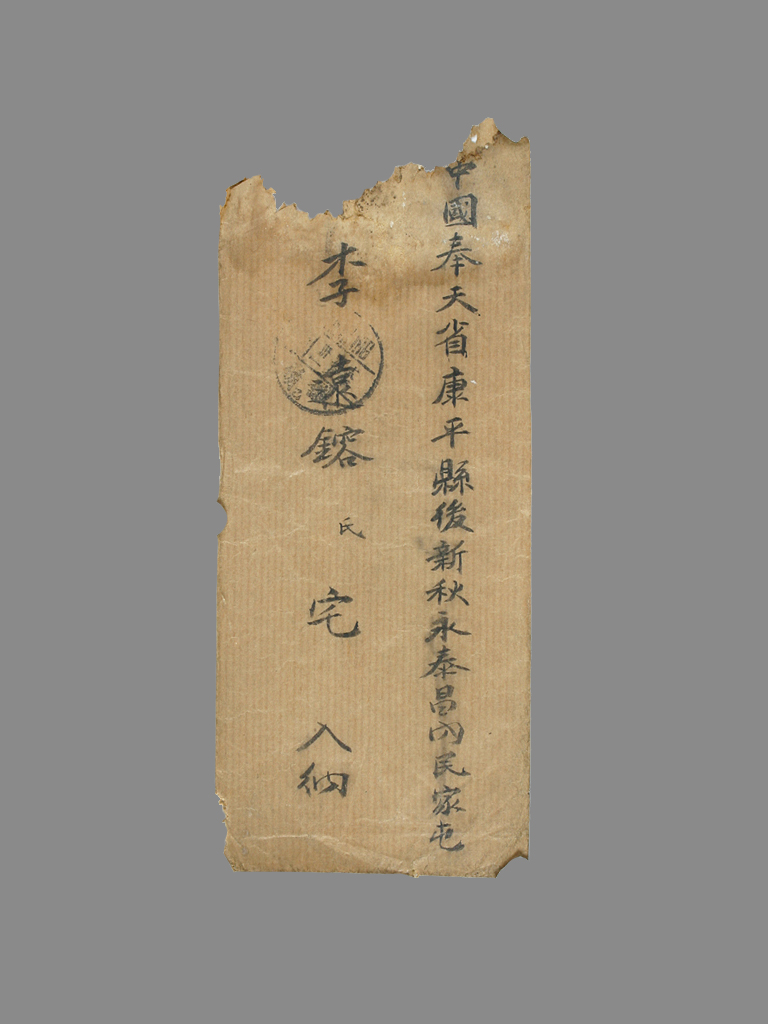 中國奉天省康平縣後新秋永泰昌內民家屯
李遠鎔氏宅入納